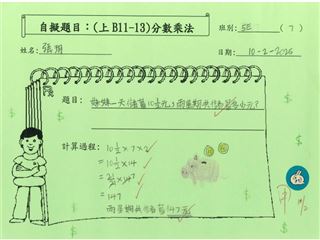 自擬題目：(上 B11-13)分數乘法
班別：5E （ 7 ）
姓名：張翔
日期：10-2-2025
題目：妹妹一天儲蓄10½元，兩星期共儲蓄多少元？
計算過程：10½ × 7 × 2
= 10½ × 14
= 21/2 × 14
= 147
兩星期共儲蓄147元